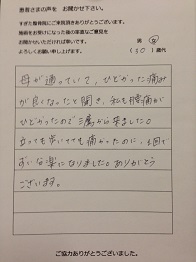 患者さまの声を お聞かせ下さい。
すぎた整骨院にご来院頂きありがとうございます。
施術をお受けになった後の率直なご意見を
お聞かせいただければ幸いです。
よろしくお願い申し上げます。
男 女
(30)歳代
母が通っていて、ひどかった痛み
が良くなったと聞き、私も腰痛が
ひどかったので三鷹から来ました。
立っても歩いても痛かったのに、1回で
ずいぶん楽になりました。ありがとう
ございます。
ご協力ありがとうございました。